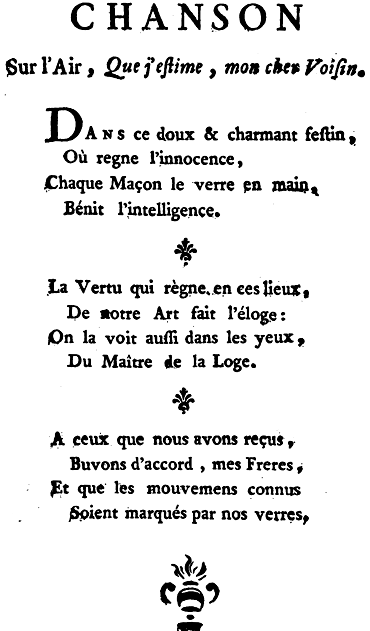 CHANSON
Sur l'Air, Que j'eſtime, mon cher Voiſin.
DANS ce doux & charmant feſtin,
Où regne l'innocence,
Chaque Maçon le verre en main,
Bénit l'intelligence.
La Vertu qui règne en ces lieux,
De notre Art fait l'éloge:
On la voit auſſi dans les yeux,
Du Maître de la Loge.
A ceux que nous avons reçus,
Buvons d'accord, mes Freres,
Et que les mouvemens connus
Soient marqués par nos verres,